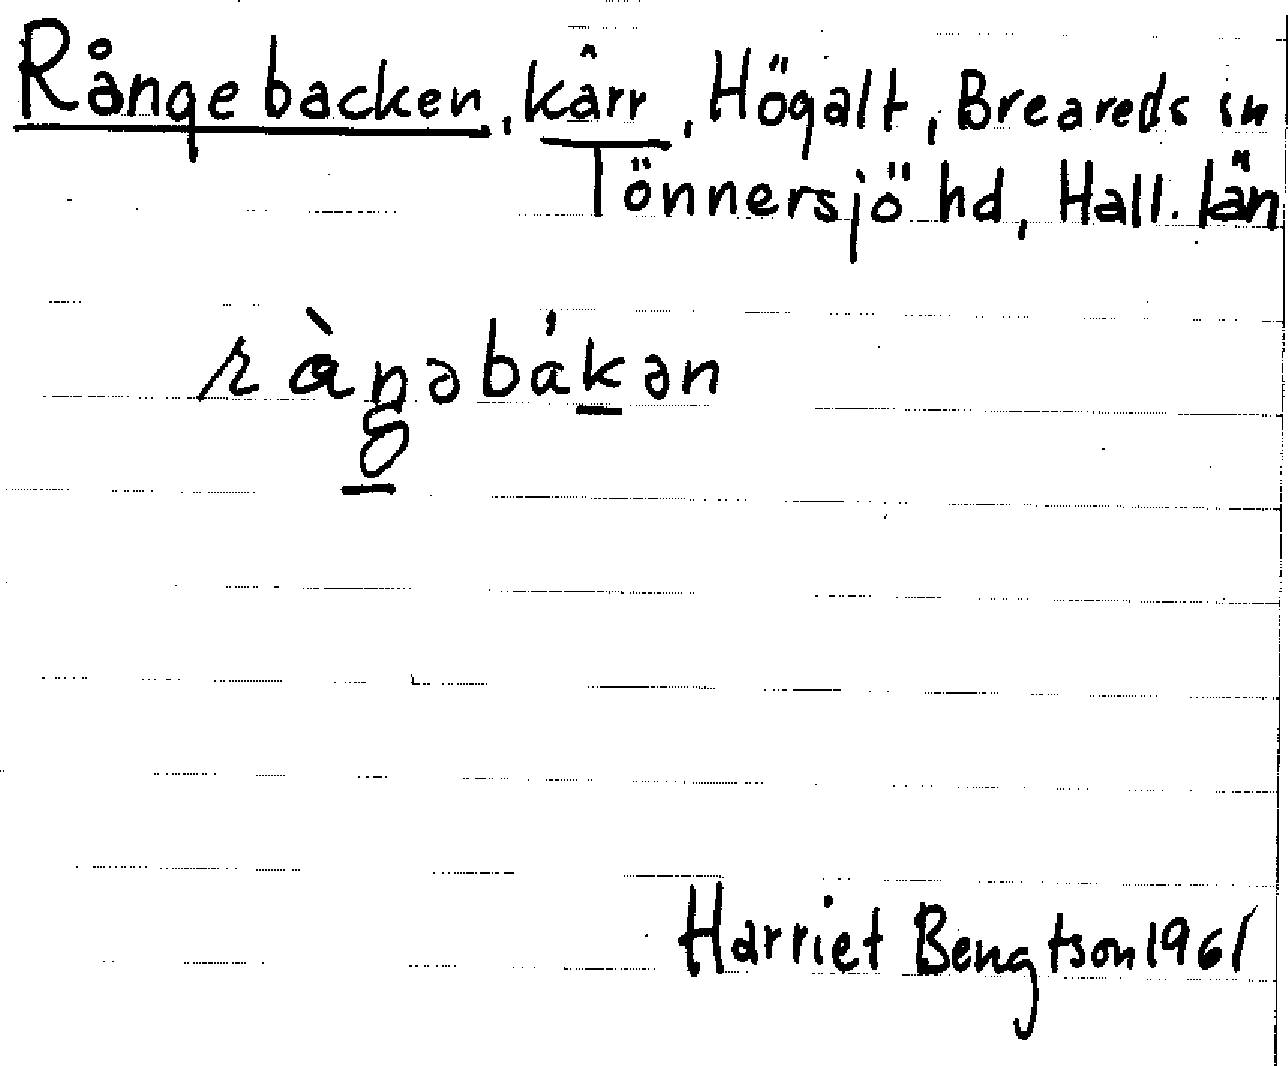 Rångebacken, kärr, Högalt, Breareds sn
Tönnersjö hd, Hall. län
ràŋəbákən
Harriet Bengtson 1961